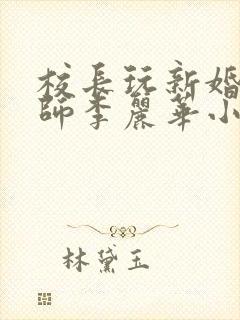 校長玩新婚
師李麗華小
林黛玉